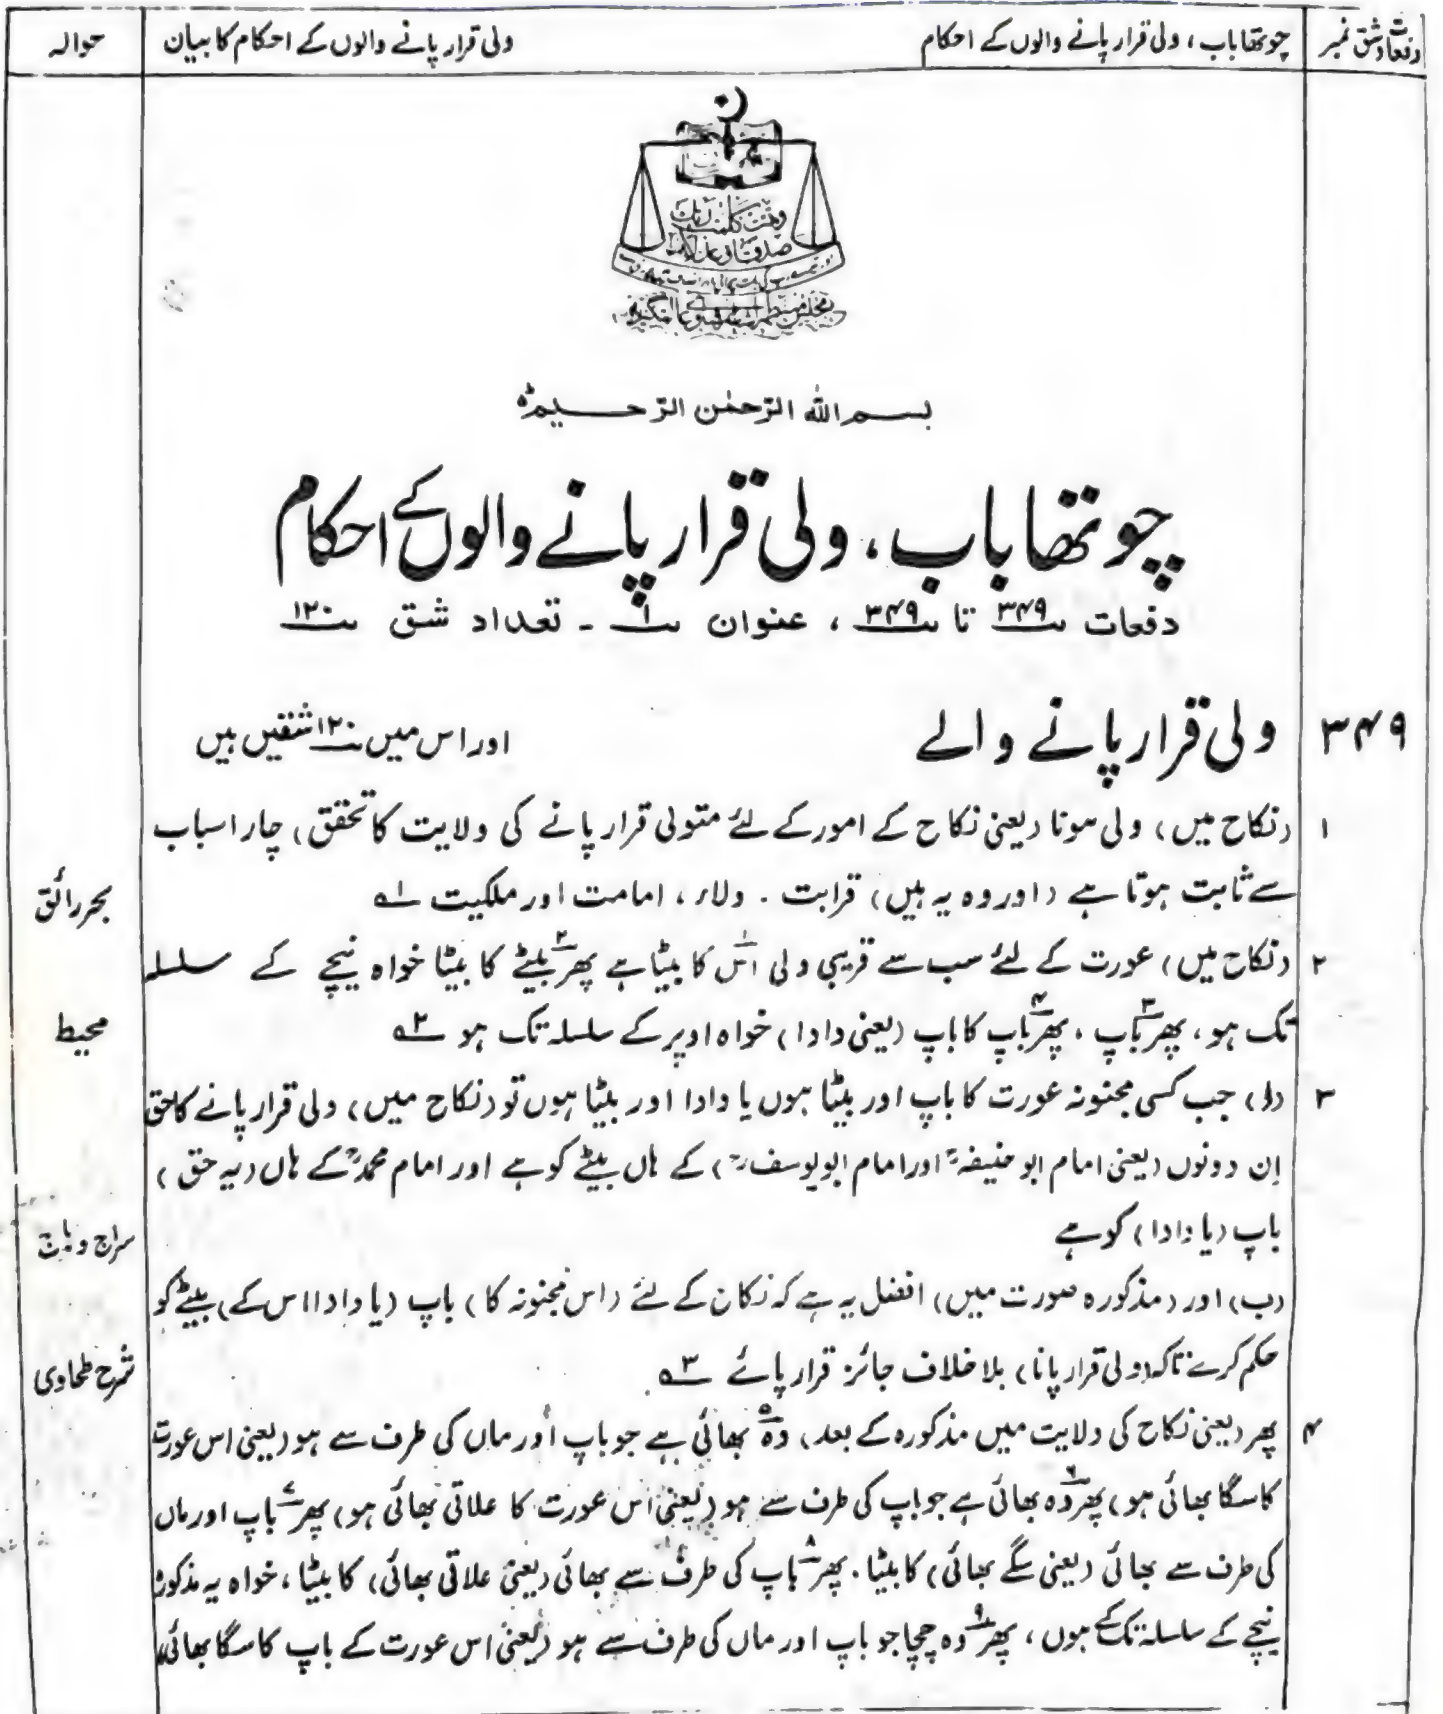 دفعات و شق نمبر | چوتھا باب، ولی قرار پانے والوں کے احکام | ولی قرار پانے والوں کے احکام کا بیان | حوالہ
وتمت کلمت ربک
صدقا وعدلا
بسم اللہ الرّحمٰن الرّحیم
چوتھا باب، ولی قرار پانے والوں کے احکام
دفعات ۳۴۹ تا ۳۴۹، عنوان ۱۔ تعداد شق ۱۲۰
۳۴۹ ولی قرار پانے والے اور اس میں ۱۲۰ شقیں ہیں
۱ (نکاح میں) ولی ہونا (یعنی نکاح کے امور کے لئے متولی قرار پانے کی ولایت کا تحقق) چار اسباب
سے ثابت ہوتا ہے (اور وہ یہ ہیں) قرابت . ولاء ، امامت اور ملکیت ۱ــہ بحر رائق
۲ (نکاح میں) عورت کے لئے سب سے قریبی ولی ۱ اس کا بیٹا ہے پھر ۲ بیٹے کا بیٹا خواہ نیچے کے سلسلہ
تک ہو، پھر ۳ باپ ، پھر ۴ باپ کا باپ (یعنی دادا) خواہ اوپر کے سلسلہ تک ہو ۲ــہ محیط
۳ (ا) جب کسی مجنونہ عورت کا باپ اور بیٹا ہوں یا دادا اور بیٹا ہوں تو (نکاح میں) ولی قرار پانے کا حق
اِن دونوں (یعنی امام ابو حنیفہؒ اور امام ابو یوسفؒ) کے ہاں بیٹے کو ہے اور امام محمدؒ کے ہاں (یہ حق)
باپ (یا دادا) کو ہے سراج وہاج
(ب) اور (مذکورہ صورت میں) افضل یہ ہے کہ نکاح کے لئے (اس مجنونہ کا) باپ (یا دادا اس کے) بیٹے کو
حکم کرے تاکہ (ولی قرار پانا) بلا خلاف جائز قرار پائے ۳ــہ شرح طحاوی
۴ پھر (یعنی نکاح کی ولایت میں مذکورہ کے بعد) ۵ وہ بھائی ہے جو باپ اور ماں کی طرف سے ہو (یعنی اس عورت
کا سگا بھائی ہو) پھر ۶ وہ بھائی ہے جو باپ کی طرف سے ہو (یعنی اس عورت کا علاتی بھائی ہو) پھر ۷ باپ اور ماں
کی طرف سے بھائی (یعنی سگے بھائی) کا بیٹا . پھر ۸ باپ کی طرف سے بھائی (یعنی علاتی بھائی) کا بیٹا ، خواہ یہ مذکورہ
نیچے کے سلسلہ تک کے ہوں ، پھر ۹ وہ چچا جو باپ اور ماں کی طرف سے ہو (یعنی اس عورت کے باپ کا سگا بھائی)